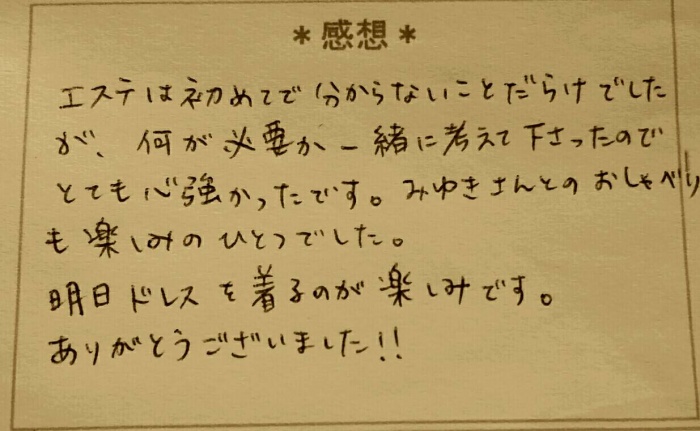 ＊感想＊
エステは初めてで分からないことだらけでした
が、何が必要か一緒に考えて下さったので
とても心強かったです。みゆきさんとのおしゃべり
も楽しみのひとつでした。
明日ドレスを着るのが楽しみです。
ありがとうございました!!